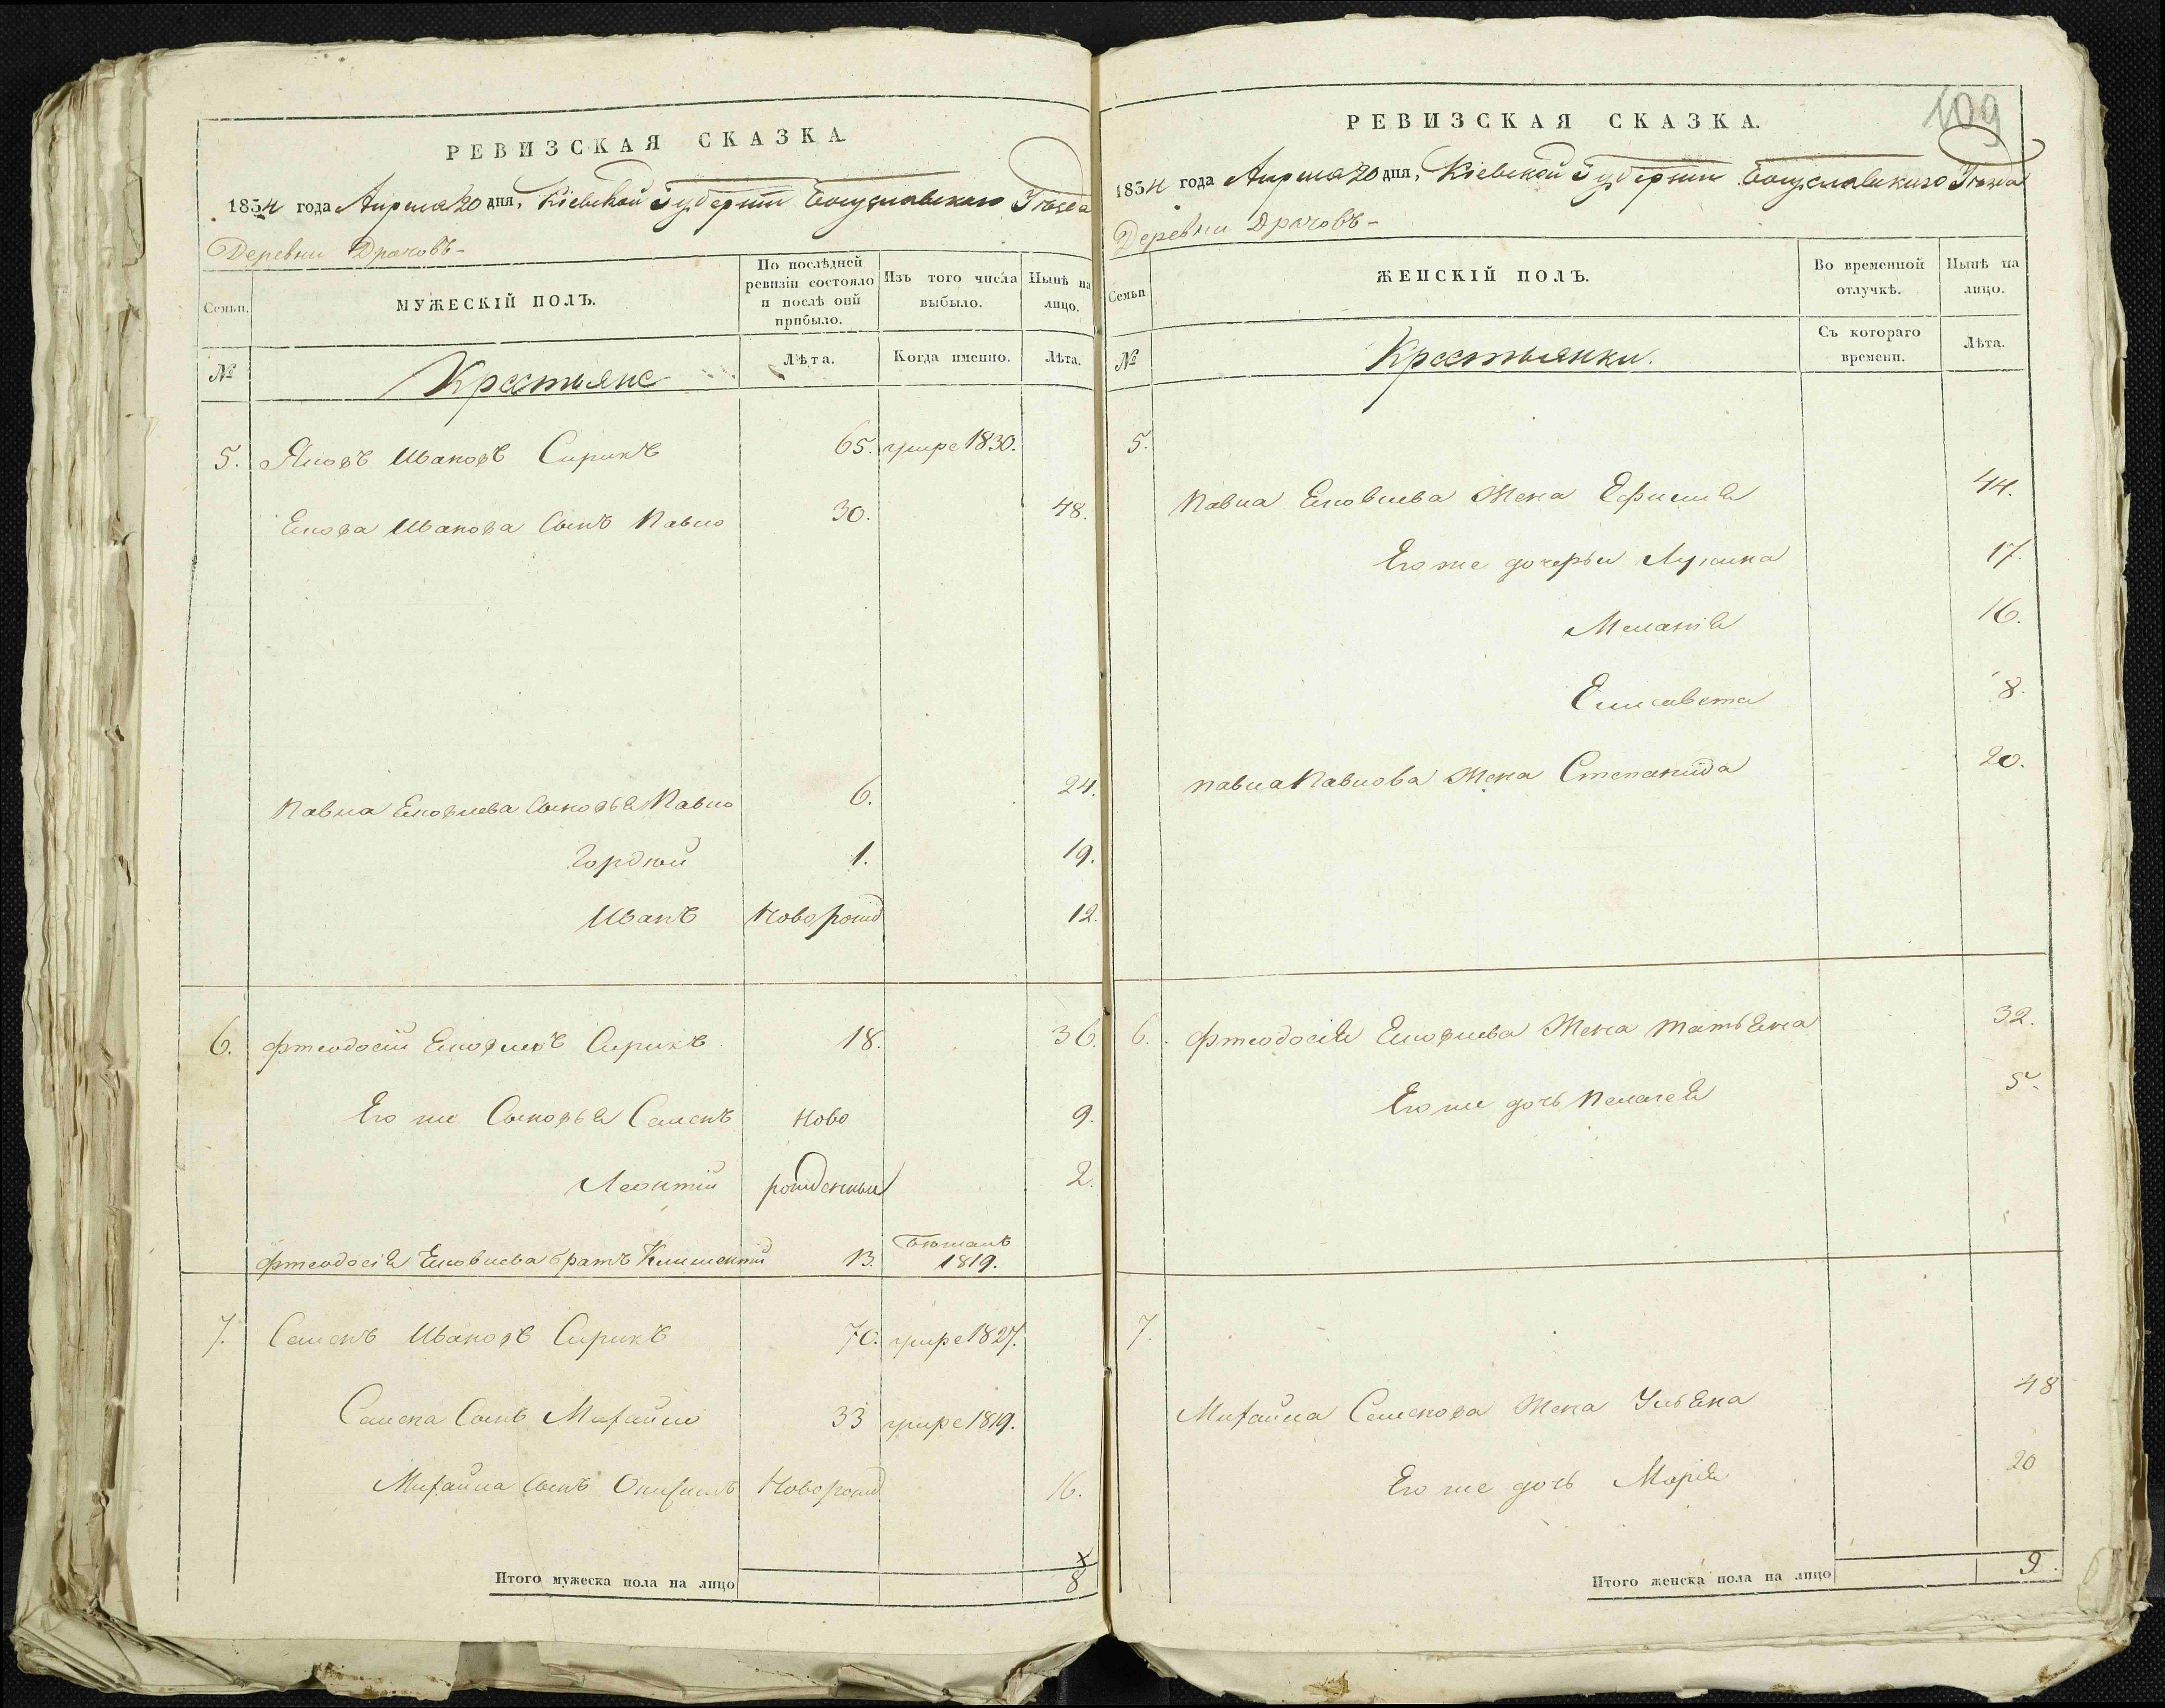 РЕВИЗСКАЯ СКАЗКА
1834 года Апреля 20 дня, Кіевской Губерніи Богуславского Уѣзда
Деревни Драчовъ-
Семьи.
МУЖЕСКІЙ ПОЛЪ.
По послѣдней ревизіи состояло и послѣ оній прибыло.
Изъ того числа выбыло.
Нынѣ на лицо.
№
Крестьяне
Лѣта.
Когда именно.
Лѣта.
5. Яковъ Ивановъ Сирикъ 65. умре 1830.
Екова Иванова Сынъ Павло 30. 48.
Павла Ековлева Сыновья Павло 6. 24.
Гордѣй 1. 19.
Иванъ Новорожд 12.
6. Фтеодосій Ековлевъ Сирикъ 18. 36.
Его же Сыновья Семенъ Ново 9.
Леонтій рожденныи 2.
Фтеодосія Ековлева братъ Климентій 13. бѣжалъ 1819.
7. Семенъ Ивановъ Сирикъ 70. умре 1827.
Семена Сынъ Михайло 33 умре 1819.
Михайла Сынъ Онисимъ Новорожд 16.
Итого мужеска пола на лицо 8
109
РЕВИЗСКАЯ СКАЗКА.
1834 года Апреля 20 дня, Кіевской Губерніи Богуславского Уѣзда
Деревни Драчовъ-
Семьи
ЖЕНСКІЙ ПОЛЪ.
Во временной отлучкѣ.
Нынѣ на лицо.
№
Крестьянки.
Съ котораго времени.
Лѣта.
5.
Павла Ековлева Жена Ефимія 44.
Его же дочерьи Лукина 17.
Меланія 16.
Елисавета 8.
Павла Павлова Жена Степанида 20.
6. Фтеодосія Ековлева Жена Татьяна 32.
Его же дочь Пелагея 5.
7.
Михайла Семенова Жена Ульяна 48
Его же дочь Марія 20
Итого женска пола на лицо 9.